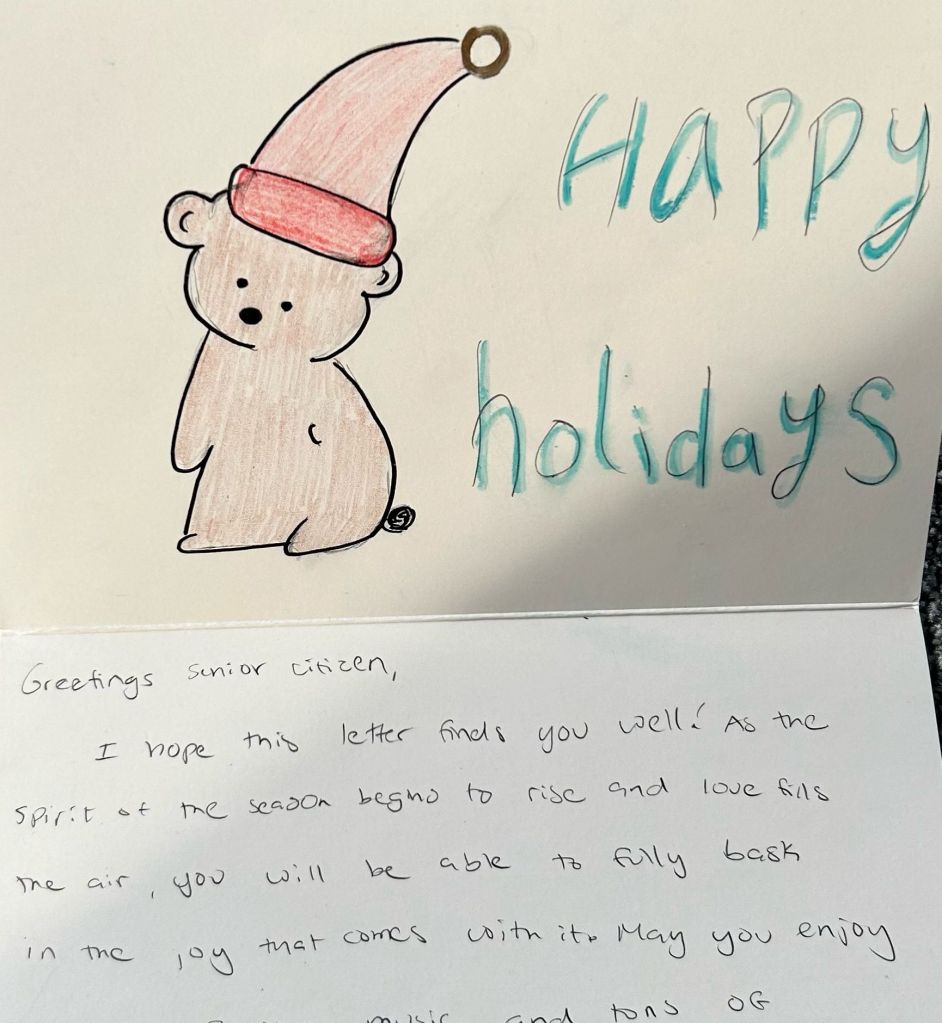 Happy
holidays
Greetings senior citizen,
I hope this letter finds you well! As the
spirit of the season begins to rise and love fills
the air, you will be able to fully bask
in the joy that comes with it. May you enjoy
music and tons of